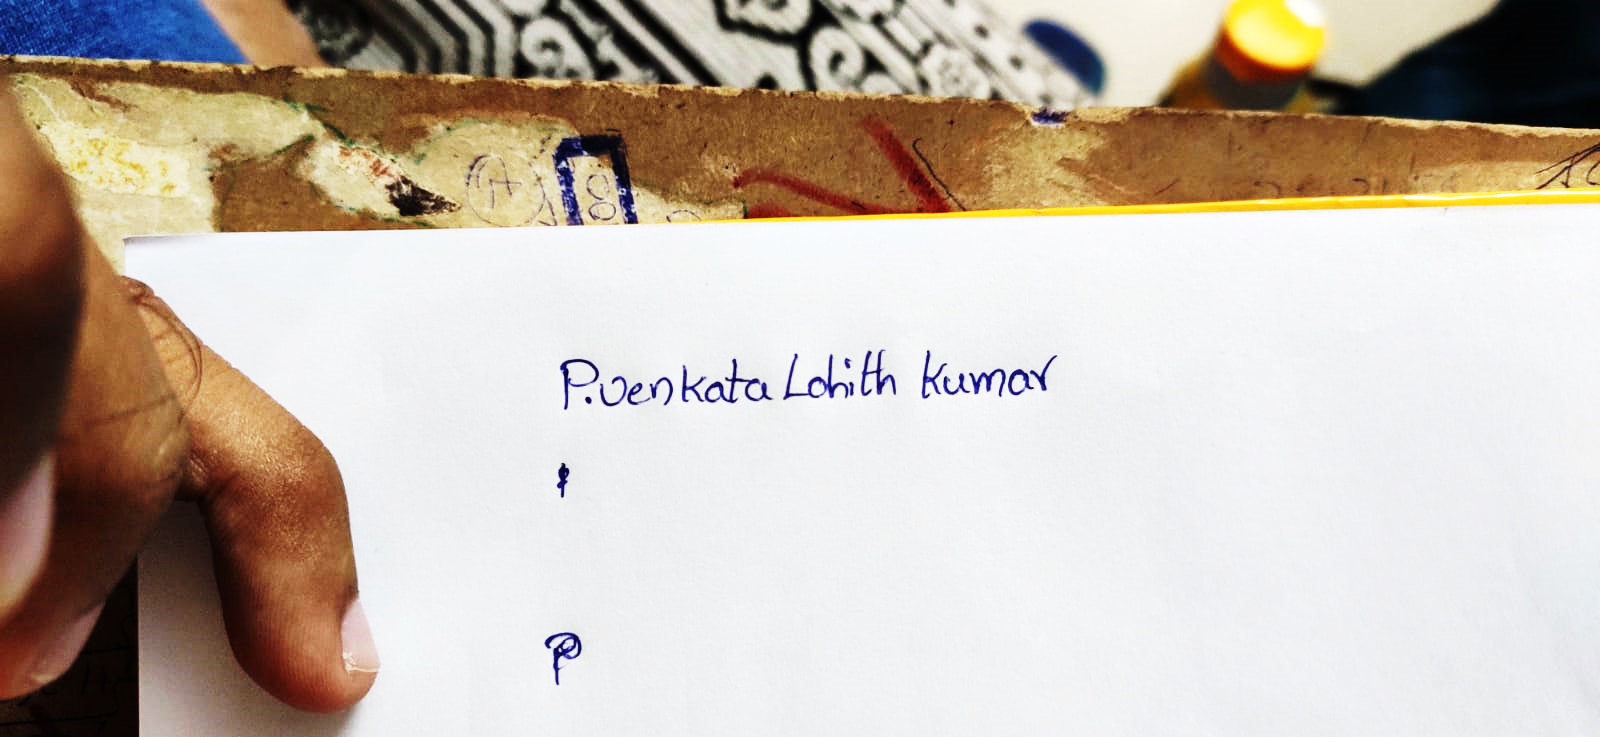 P.Venkata Lohith Kumar
P